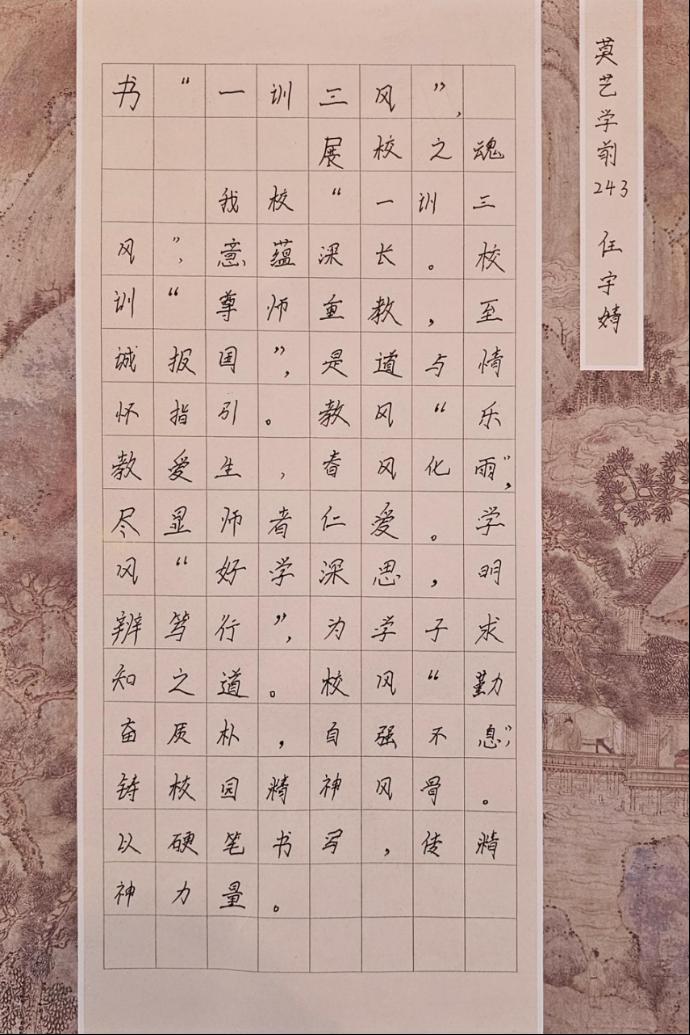 书“一训三风”，
展校之魂
我校“一训三
风”，意蕴深长。校
训“尊师重教，至
诚报国”，是道与情
怀指引。教风“乐
教爱生，春风化雨”，
尽显师者仁爱。学
风“好学深思，明
辨笃行”，为学子求
知之道。校风“勤
奋质朴，自强不息”，
铸校园精神风骨。
以硬笔书写，传精
神力量。
莫艺学前
243
任宇婧